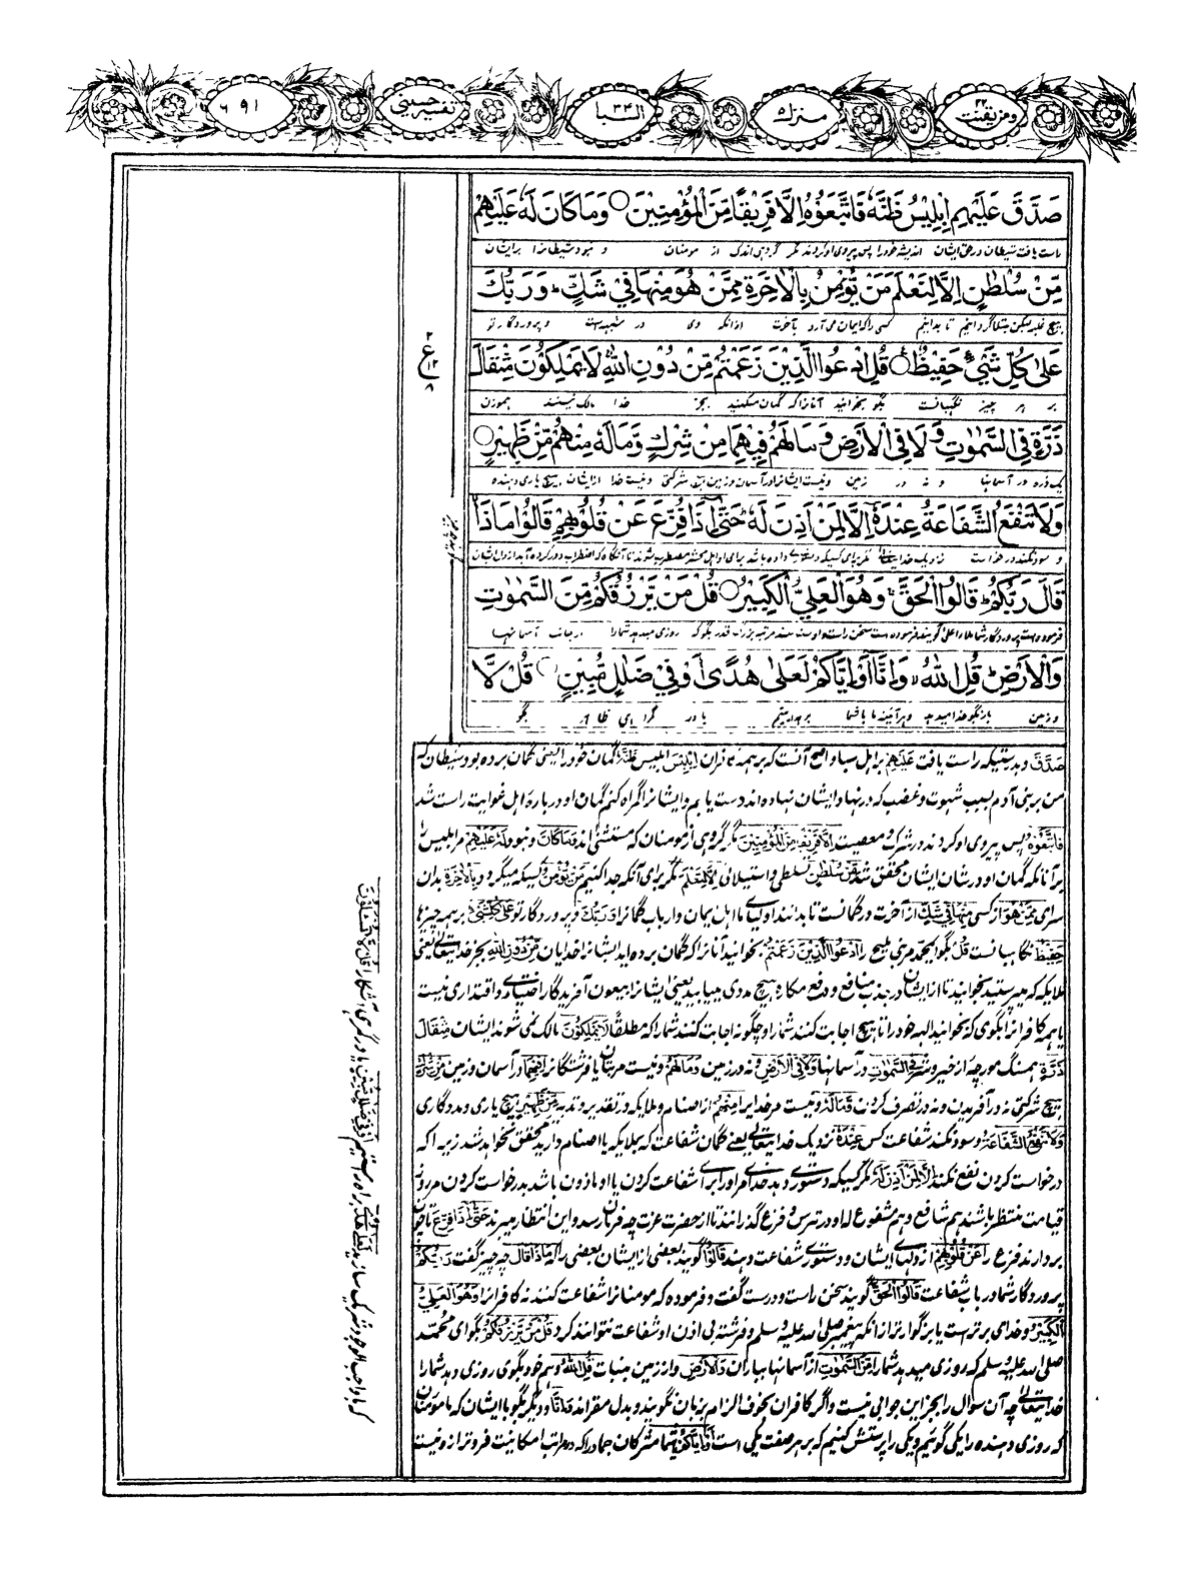 ومن یقنت ۲۲
منزل ۵
السبا ۳۴
تفسیر حسینی
۶۹۱
صَدَّقَ عَلَيْهِمْ اِبْلِيْسُ ظَنَّهٗ فَاتَّبَعُوْهُ اِلَّا فَرِيْقًا مِّنَ الْمُؤْمِنِيْنَ ○ وَمَا كَانَ لَهٗ عَلَيْهِمْ
راست یافت شیطان در حق ایشان اندیشه خود را پس پیروی او کردند مگر گروهی اندک از مومنان و نبود شیطان را بر ایشان
مِّنْ سُلْطٰنٍ اِلَّا لِنَعْلَمَ مَنْ يُّؤْمِنُ بِالْاٰخِرَةِ مِمَّنْ هُوَ مِنْهَا فِيْ شَكٍّ ؕ وَرَبُّكَ
هیچ غلبه لیکن مبتلا گردانیم تا بدانیم کسی را که ایمان می آرد بآخرت از آنکه وی در شبهه است و پروردگار تو
عَلٰى كُلِّ شَيْءٍ حَفِيْظٌ ○ قُلِ ادْعُوا الَّذِيْنَ زَعَمْتُمْ مِّنْ دُوْنِ اللّٰهِ ۚ لَا يَمْلِكُوْنَ مِثْقَالَ
بر هر چیز نگهبانست بگو بخوانید آنانرا که گمان میکنید بجز خدا مالک نیستند هموزن
ذَرَّةٍ فِي السَّمٰوٰتِ وَلَا فِي الْاَرْضِ وَمَا لَهُمْ فِيْهِمَا مِنْ شِرْكٍ وَّمَا لَهٗ مِنْهُمْ مِّنْ ظَهِيْرٍ ○
یک ذره در آسمانها و نه در زمین و نیست ایشانرا در آسمان و زمین هیچ شرکتی و نیست خدا را از ایشان هیچ یاری دهنده
وَلَا تَنْفَعُ الشَّفَاعَةُ عِنْدَهٗٓ اِلَّا لِمَنْ اَذِنَ لَهٗ ؕ حَتّٰٓى اِذَا فُزِّعَ عَنْ قُلُوْبِهِمْ قَالُوْا مَاذَا
و سود نکند درخواست نزدیک خدا مگر برای کسیکه دستوری داده باشد برای او
قَالَ رَبُّكُمْ ؕ قَالُوا الْحَقَّ ۚ وَهُوَ الْعَلِيُّ الْكَبِيْرُ ○ قُلْ مَنْ يَّرْزُقُكُمْ مِّنَ السَّمٰوٰتِ
فرموده است پروردگار شما بگو که روزی میدهد شما را از جانب آسمانها
وَالْاَرْضِ ؕ قُلِ اللّٰهُ ۙ وَاِنَّآ اَوْ اِيَّاكُمْ لَعَلٰى هُدًى اَوْ فِيْ ضَلٰلٍ مُّبِيْنٍ ○ قُلْ لَّا
و زمین باز بگو خدا میدهد و هر آئینه ما یا شما بر هدایتیم یا در گمراهی ظاهر بگو
ع
صَدَّقَ و بدرستیکه راست یافت عَلَيْهِمْ بر اهل سبا و اصح آنست که بر همه کافران اِبْلِيْسُ ابلیس ظَنَّهٗ گمان خود را یعنی گمان برده بود شیطان که
من بر بنی آدم بسبب شهوت و غضب که در نهاد ایشان نهاده اند دست یابم و ایشانرا گمراه کنم گمان او در باره اهل غوایت راست شد
فَاتَّبَعُوْهُ پس پیروی او کردند در شرک و معصیت اِلَّا فَرِيْقًا مِّنَ الْمُؤْمِنِيْنَ مگر گروهی از مومنان که مستثنی اند وَمَا كَانَ و نبود لَهٗ عَلَيْهِمْ مر ابلیس را
بر آنانکه گمان او در شان ایشان محقق شد مِّنْ سُلْطٰنٍ تسلطی و استیلائی اِلَّا لِنَعْلَمَ مگر برای آنکه جدا کنیم مَنْ يُّؤْمِنُ کسیکه میگرود بِالْاٰخِرَةِ بدان
سرای مِمَّنْ هُوَ از کسی مِنْهَا فِيْ شَكٍّ از آخرت در گمانست تا بدانند اولیای ما اهل ایمان و ارباب گمانرا وَرَبُّكَ و پروردگار تو عَلٰى كُلِّ شَيْءٍ بر همه چیزها
حَفِيْظٌ نگاهبانست قُلْ بگو ای محمد مر بنی ملیح را ادْعُوا الَّذِيْنَ زَعَمْتُمْ بخوانید آنانرا که گمان برده اید ایشانرا خدایان مِّنْ دُوْنِ اللّٰهِ بجز خدایتعالی یعنی
ملایکه که میپرستید بخوانید تا از ایشان در جذب منافع و دفع مکاره هیچ مددی مییابید یعنی ایشانرا بیعون آفریدگار اختیاری و اقتداری نیست
یا همه کافرانرا بگوی که بخوانید الهه خود را تا هیچ اجابت کنند شما را و چگونه اجابت کنند شما را که مطلقًا لَا يَمْلِكُوْنَ مالک نمی شوند ایشان مِثْقَالَ
ذَرَّةٍ همسنگ مورچه از خیر و شر فِي السَّمٰوٰتِ در آسمانها وَلَا فِي الْاَرْضِ و نه در زمین وَمَا لَهُمْ و نیست مر بتان یا فرشتگانرا فِيْهِمَا در آسمان و زمین مِنْ شِرْكٍ
هیچ شرکتی نه در آفریدن و نه در تصرف کردن وَمَا لَهٗ و نیست مر خدایرا مِنْهُمْ از اصنام و ملایکه در تقدیر و تدبیر مِّنْ ظَهِيْرٍ هیچ یاری و مددگاری
وَلَا تَنْفَعُ الشَّفَاعَةُ و سود نکند شفاعت کس عِنْدَهٗ نزدیک خدایتعالی یعنی گمان شفاعت که بملایکه یا اصنام دارید محقق نخواهد شد زیرا که
درخواست کردن نفع نکند اِلَّا لِمَنْ اَذِنَ لَهٗ مگر کسیکه دستوری دهد خدای مر او را برای شفاعت کردن یا او ماذون باشد بدرخواست کردن مر روز
قیامت منتظر باشند هم شافع و هم مشفوع له او در ترس و فزع گذرانند تا از حضرت عزت چه فرمان رسد و این انتظار میبرند حَتّٰٓى اِذَا فُزِّعَ تا چون
بردارند فزع را عَنْ قُلُوْبِهِمْ از دلهای ایشان و دستوری شفاعت دهند قَالُوْا گویند بعضی از ایشان بعضی را که مَاذَا قَالَ چه چیز گفت رَبُّكُمْ
پروردگار شما در باب شفاعت قَالُوا الْحَقَّ گویند سخن راست و درست گفت و فرموده که مومنانرا شفاعت کنند نه کافرانرا وَهُوَ الْعَلِيُّ
الْكَبِيْرُ و خدای برترست یا بزرگوارتر از آنکه پیغمبر صلی الله علیه و سلم و فرشته بی اذن او شفاعت توانند کرد قُلْ مَنْ يَّرْزُقُكُمْ بگو ای محمد
صلی الله علیه و سلم که روزی میدهد شما را مِّنَ السَّمٰوٰتِ از آسمانها بباران وَالْاَرْضِ و از زمین بنبات قُلِ اللّٰهُ و هم خود بگوی روزی دهد شما را
خدایتعالی چه آن سوال را بجز این جوابی نیست و اگر کافران بخوف الزام بزبان نگویند بدل مقر اند وَاِنَّآ و دیگر بگو با ایشان که ما مومنان
که روزی دهنده را یکی گوئیم و یکی را پرستش کنیم که بر هر صفت یکی است اَوْ اِيَّاكُمْ یا شما مشرکان جماد را که در مراتب امکانیت فروتر از و نیست
که با واجب الوجود شریک سازید لَعَلٰى هُدًى بر راه راستیم اَوْ فِيْ ضَلٰلٍ مُّبِيْنٍ یا در گمرهی آشکارا قُلْ لَّا تُسْـَٔلُوْنَ